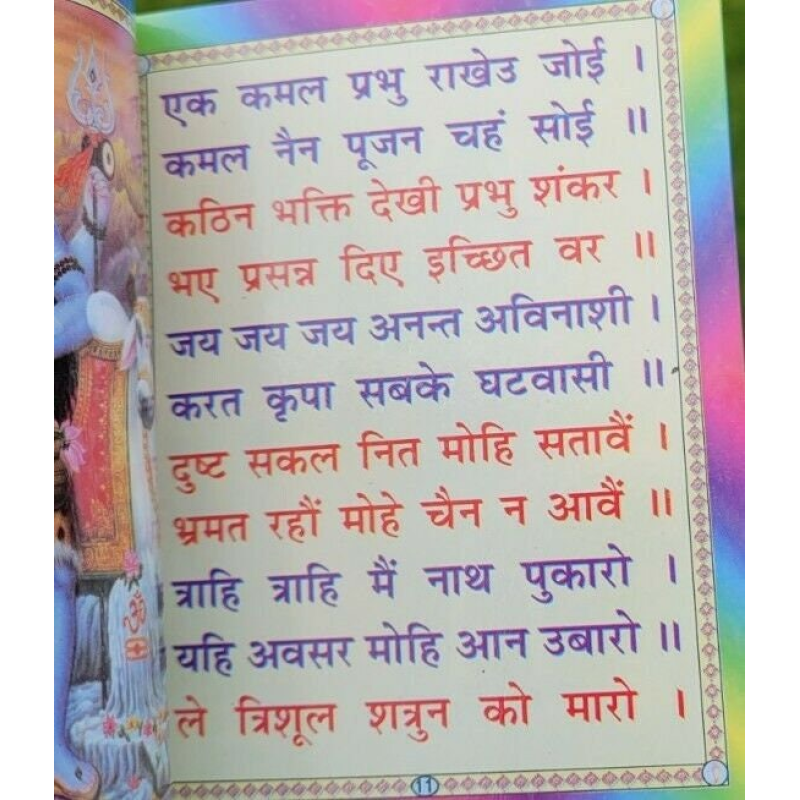 एक कमल प्रभु राखेउ जोई ।
कमल नैन पूजन चहं सोई ॥
कठिन भक्ति देखी प्रभु शंकर ।
भए प्रसन्न दिए इच्छित वर ॥
जय जय जय अनन्त अविनाशी ।
करत कृपा सबके घटवासी ॥
दुष्ट सकल नित मोहि सतावैं ।
भ्रमत रहौं मोहे चैन न आवैं ॥
त्राहि त्राहि मैं नाथ पुकारो ।
यहि अवसर मोहि आन उबारो ॥
ले त्रिशूल शत्रुन को मारो ।
ॐ
11